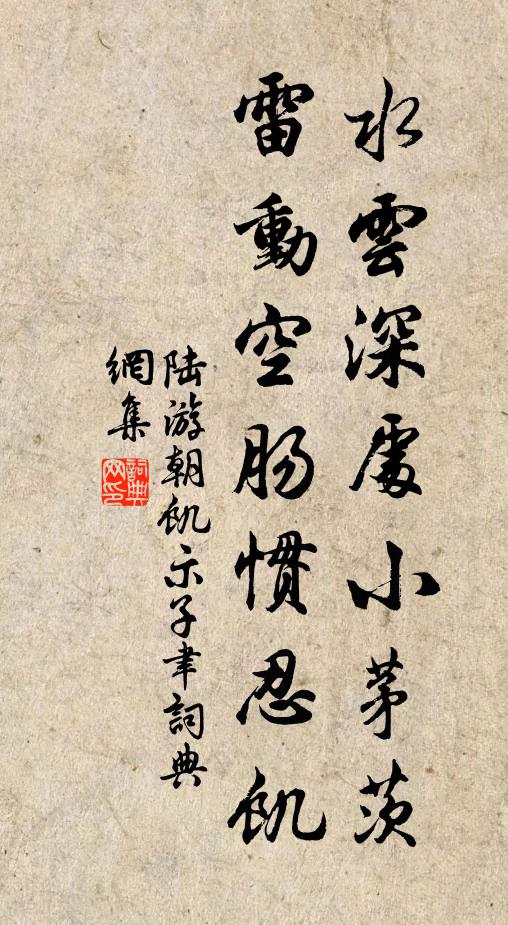 水雲深處小茅茨
雷動空腸慣忍飢
陆游朝飢示子聿詞典
網集
詞典網印